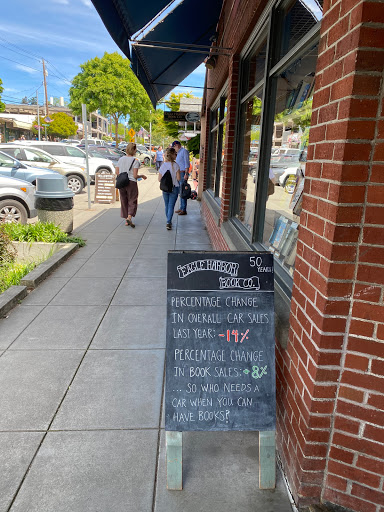 EAGLE HARBOR
BOOK CO.
50
YEARS
PERCENTAGE CHANGE
IN OVERALL CAR SALES
LAST YEAR: -14%
PERCENTAGE CHANGE
IN BOOK SALES: +8%
... SO WHO NEEDS A
CAR WHEN YOU CAN
HAVE BOOKS?